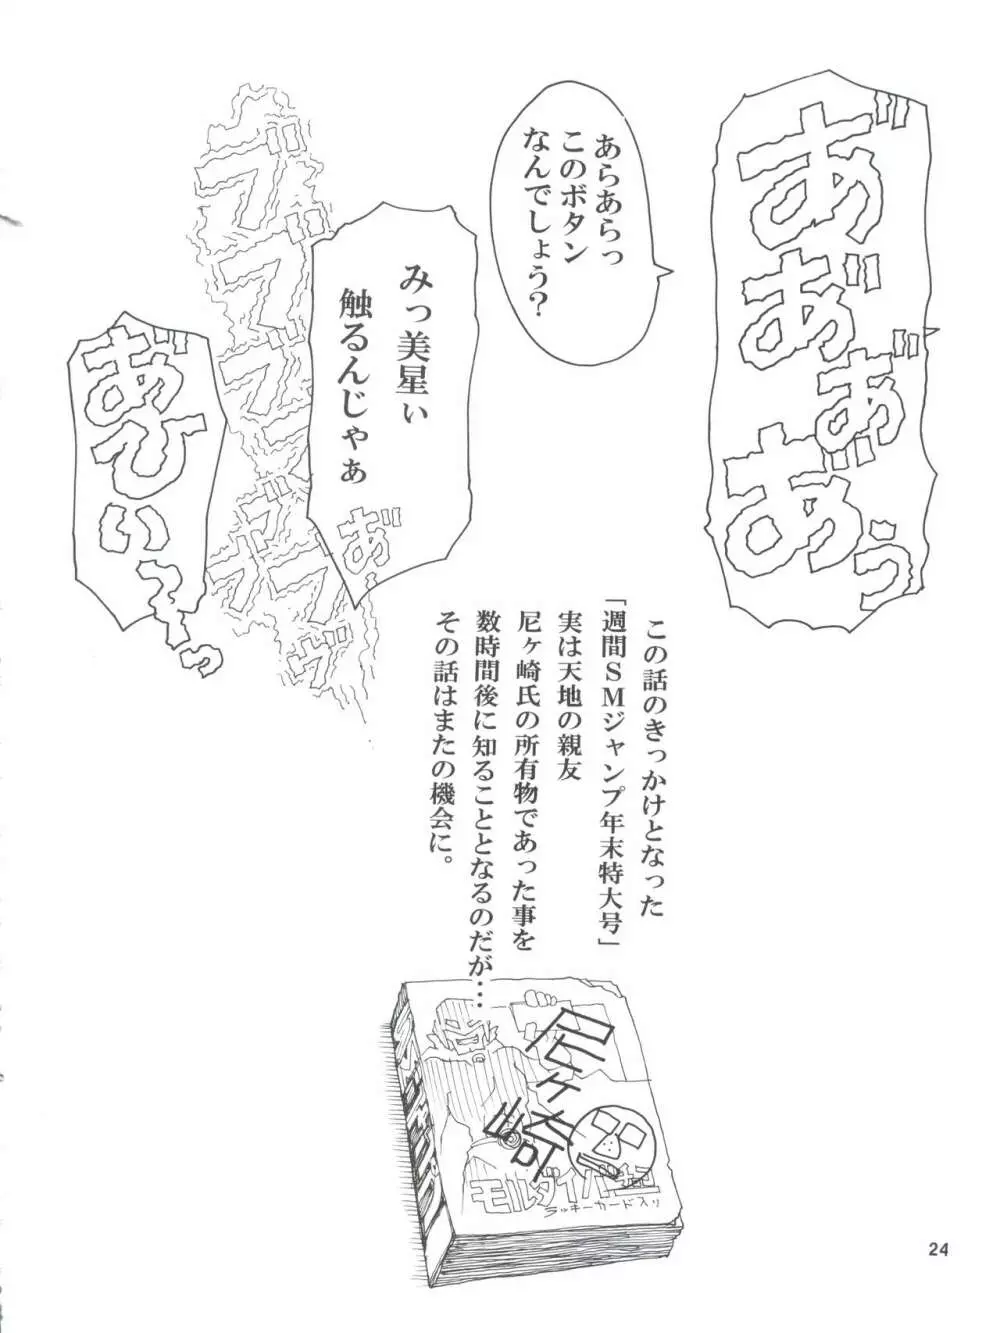 あ゛あ゛あ゛あ゛ぅ
あらあらっ
このボタン
なんでしょう?
みっ美星ぃ
触るんじゃぁ
あ゛
あ゛ひいーっ
この話のきっかけとなった
「週間SMジャンプ年末特大号」
実は天地の親友
尼ヶ崎氏の所有物であった事を
数時間後に知ることとなるのだが…
その話はまたの機会に。
尼ヶ崎
モルダイバ
ラッキーカード入り
24